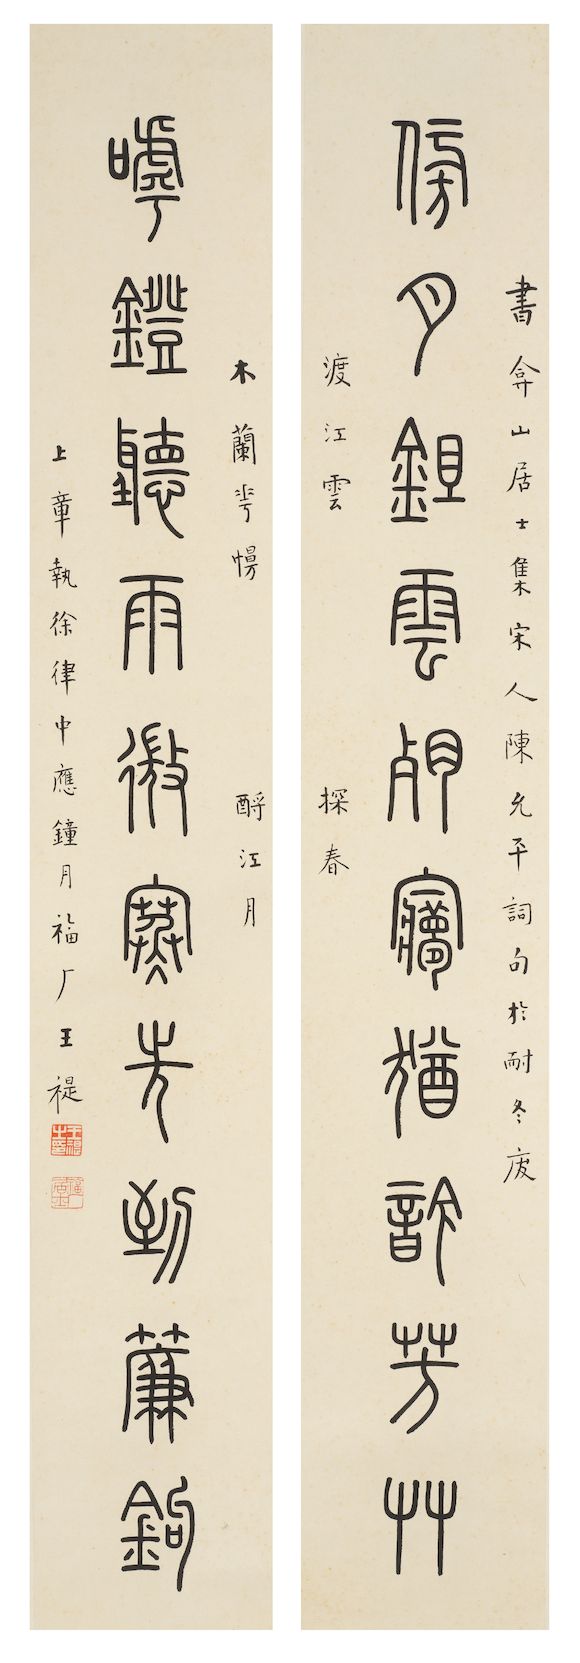 書弇山居士集宋人陳允平詞句於耐冬
傍月鉏雲夢猶許芳艸
渡江雲 探春
木蘭華慢 酹江月
嘑鐙聽雨微寒先到簾鉤
上章執徐律中應鐘月福厂王禔